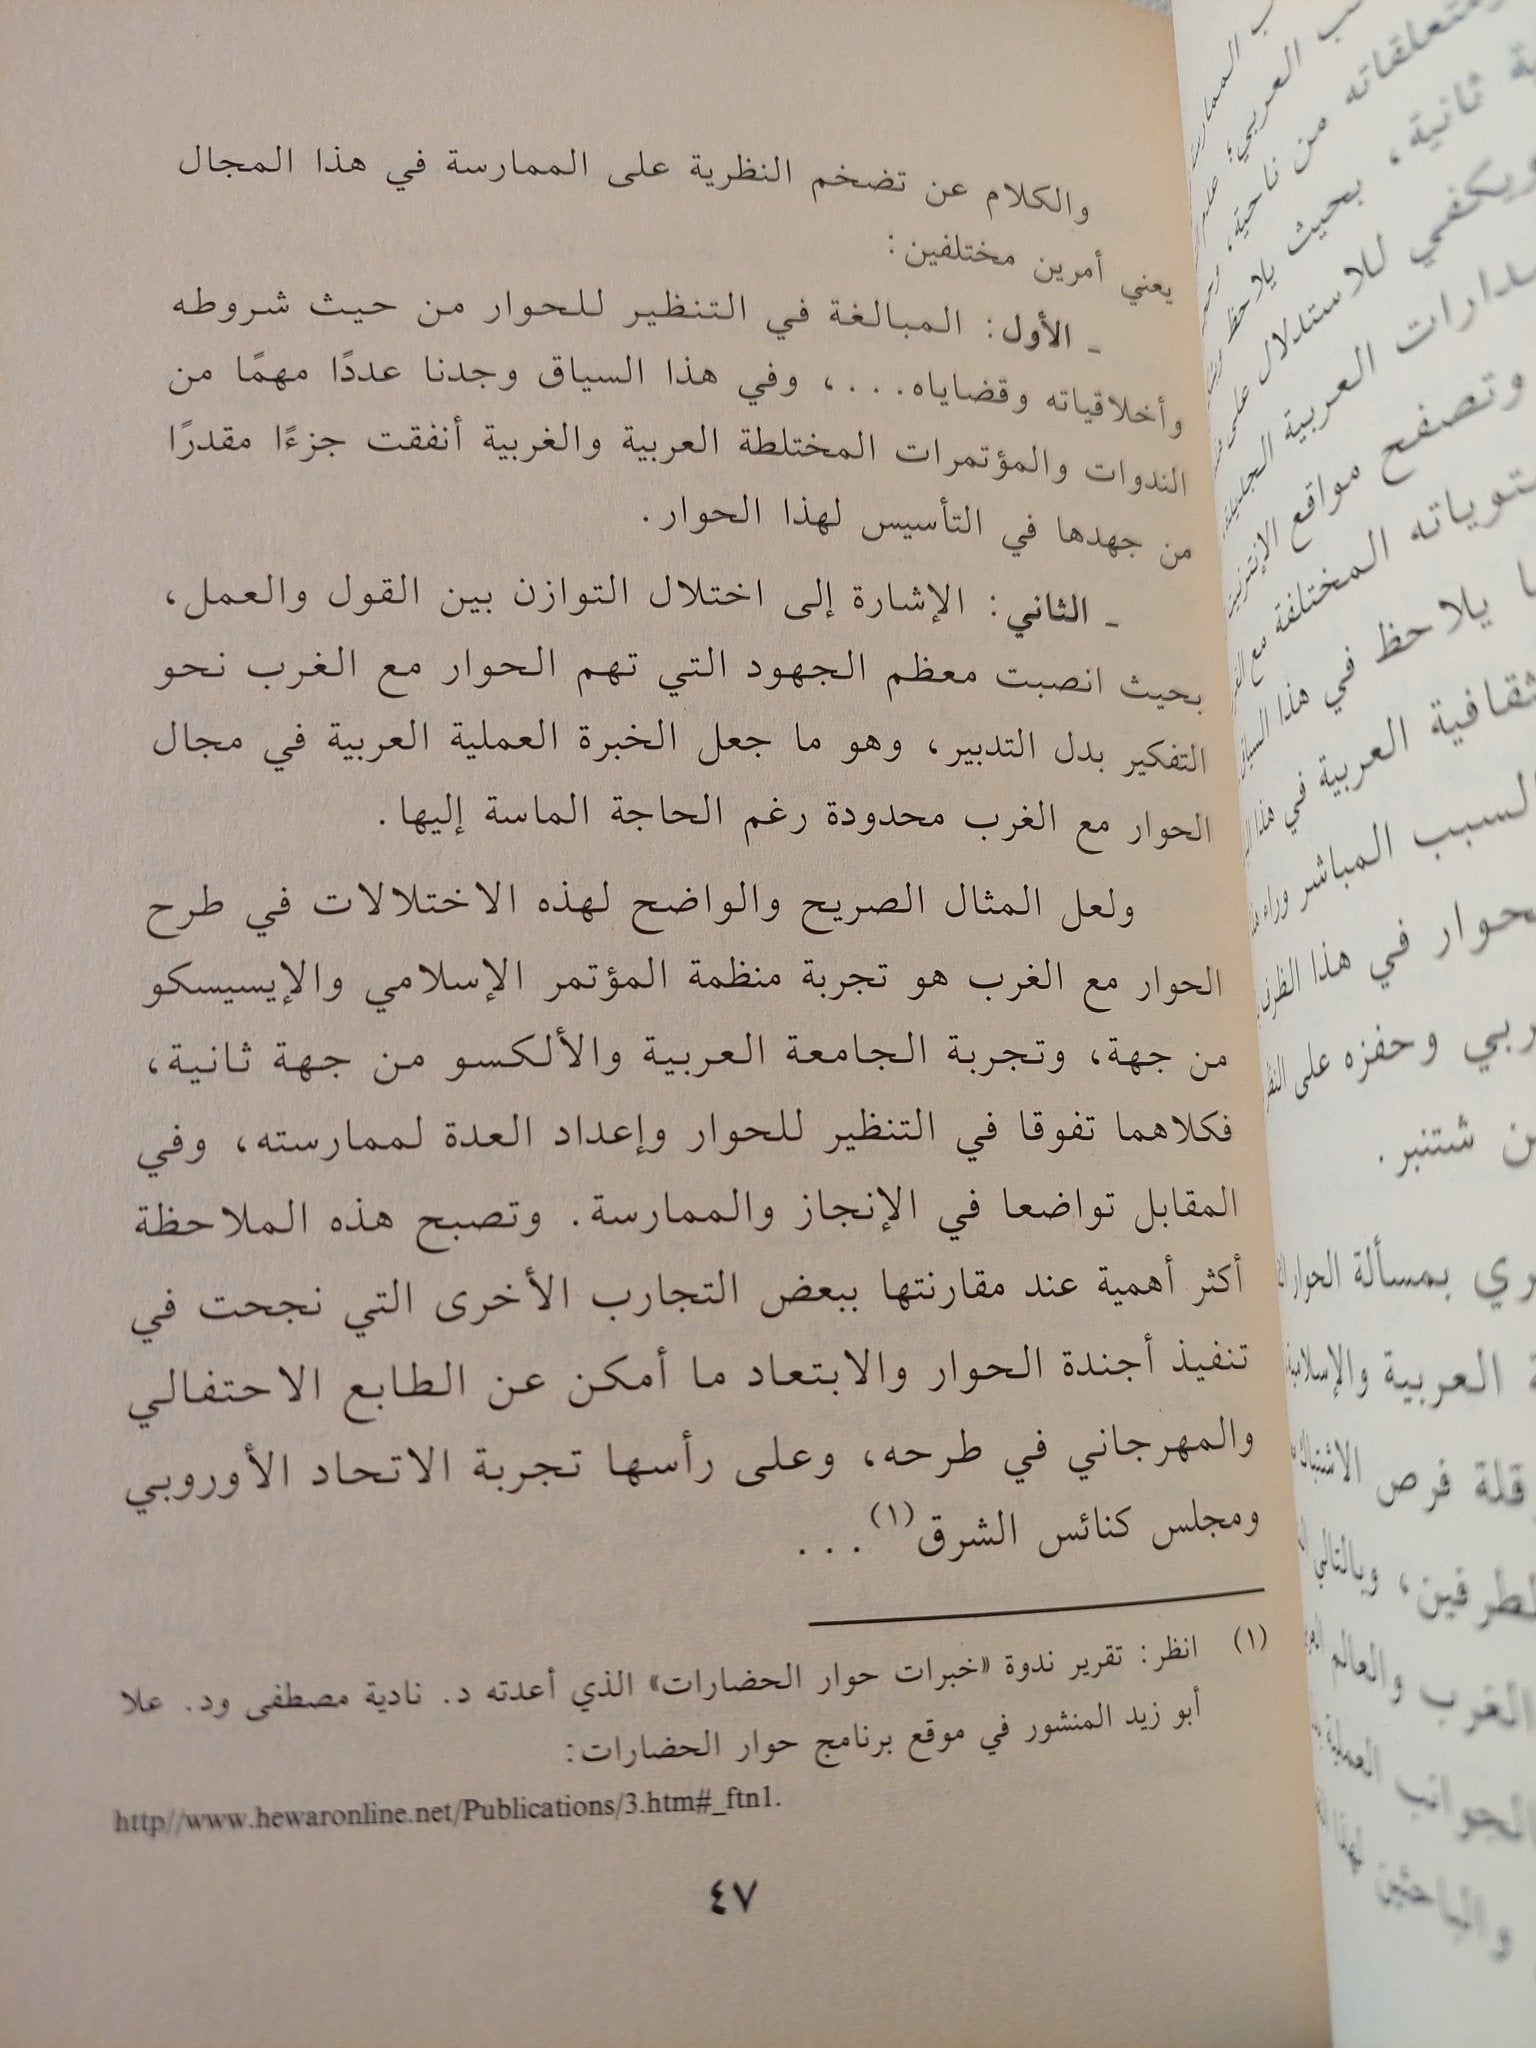 والكلام عن تضخم النظرية على الممارسة في هذا المجال
يعني أمرين مختلفين:
ـ الأول: المبالغة في التنظير للحوار من حيث شروطه
وأخلاقياته وقضاياه...، وفي هذا السياق وجدنا عددًا مهمًا من
الندوات والمؤتمرات المختلطة العربية والغربية أنفقت جزءًا مقدرًا
من جهدها في التأسيس لهذا الحوار.
ـ الثاني: الإشارة إلى اختلال التوازن بين القول والعمل،
بحيث انصبت معظم الجهود التي تهم الحوار مع الغرب نحو
التفكير بدل التدبير، وهو ما جعل الخبرة العملية العربية في مجال
الحوار مع الغرب محدودة رغم الحاجة الماسة إليها.
ولعل المثال الصريح والواضح لهذه الاختلالات في طرح
الحوار مع الغرب هو تجربة منظمة المؤتمر الإسلامي والإيسيسكو
من جهة، وتجربة الجامعة العربية والألكسو من جهة ثانية،
فكلاهما تفوقا في التنظير للحوار وإعداد العدة لممارسته، وفي
المقابل تواضعا في الإنجاز والممارسة. وتصبح هذه الملاحظة
أكثر أهمية عند مقارنتها ببعض التجارب الأخرى التي نجحت في
تنفيذ أجندة الحوار والابتعاد ما أمكن عن الطابع الاحتفالي
والمهرجاني في طرحه، وعلى رأسها تجربة الاتحاد الأوروبي
ومجلس كنائس الشرق(١)...
(١) انظر: تقرير ندوة «خبرات حوار الحضارات» الذي أعدته د. نادية مصطفى ود. علا
أبو زيد المنشور في موقع برنامج حوار الحضارات:
http//www.hewaronline.net/Publications/3.htm#_ftn1.
٤٧
العربي؛
ومتعلقاته من ناحية،
ثانية، بحيث يلاحظ
ويكفي للاستدلال على
العربية الجليلة
وتصفح مواقع الإنترنيت
المختلفة مع
يلاحظ في هذا السياق
العربية في هذا
السبب المباشر وراء
في هذا الظرف
وحفزه على
شتنبر.
بمسألة الحوار
العربية والإسلامية
قلة فرص
وبالتالي
الغرب والعالم